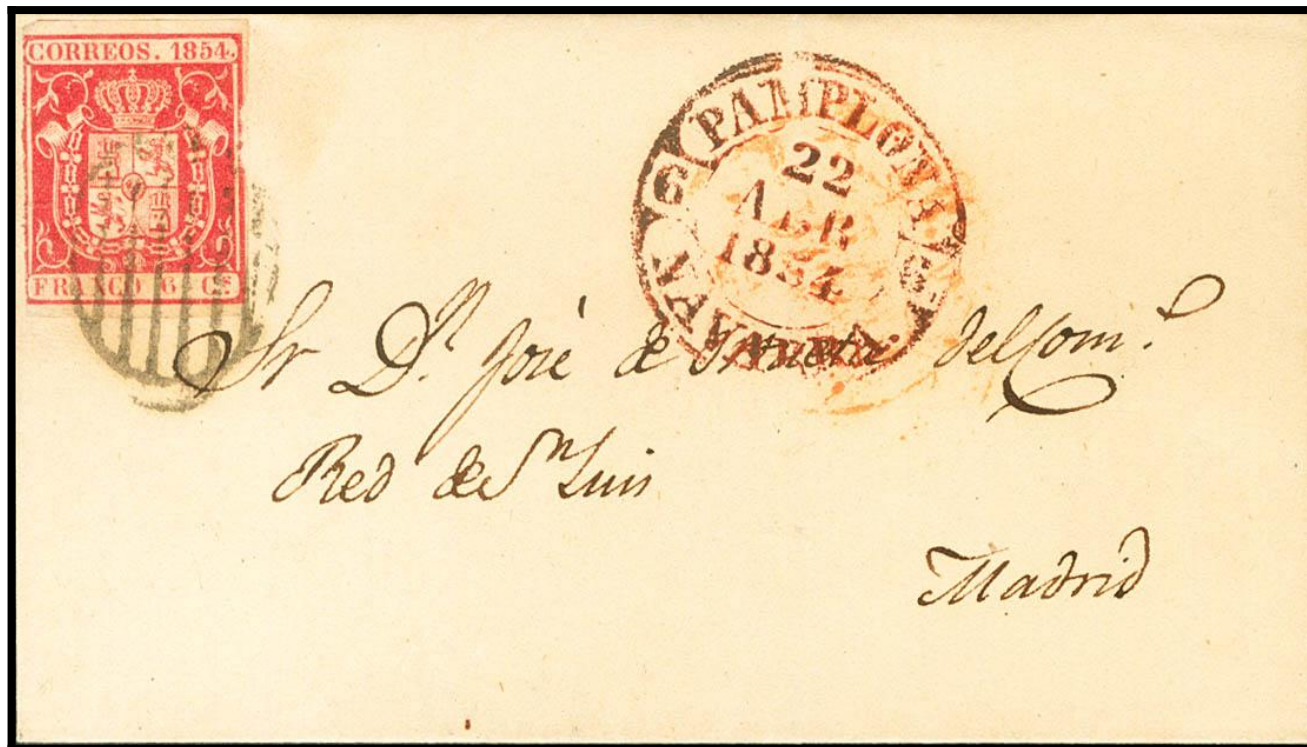 CORREOS. 1854.
FRANCO 6 Cs
PAMPLONA.
22
ABR
1854
NAVARRA.
Sr Dn. José de del Com.o
Red de Sn Luis
Madrid